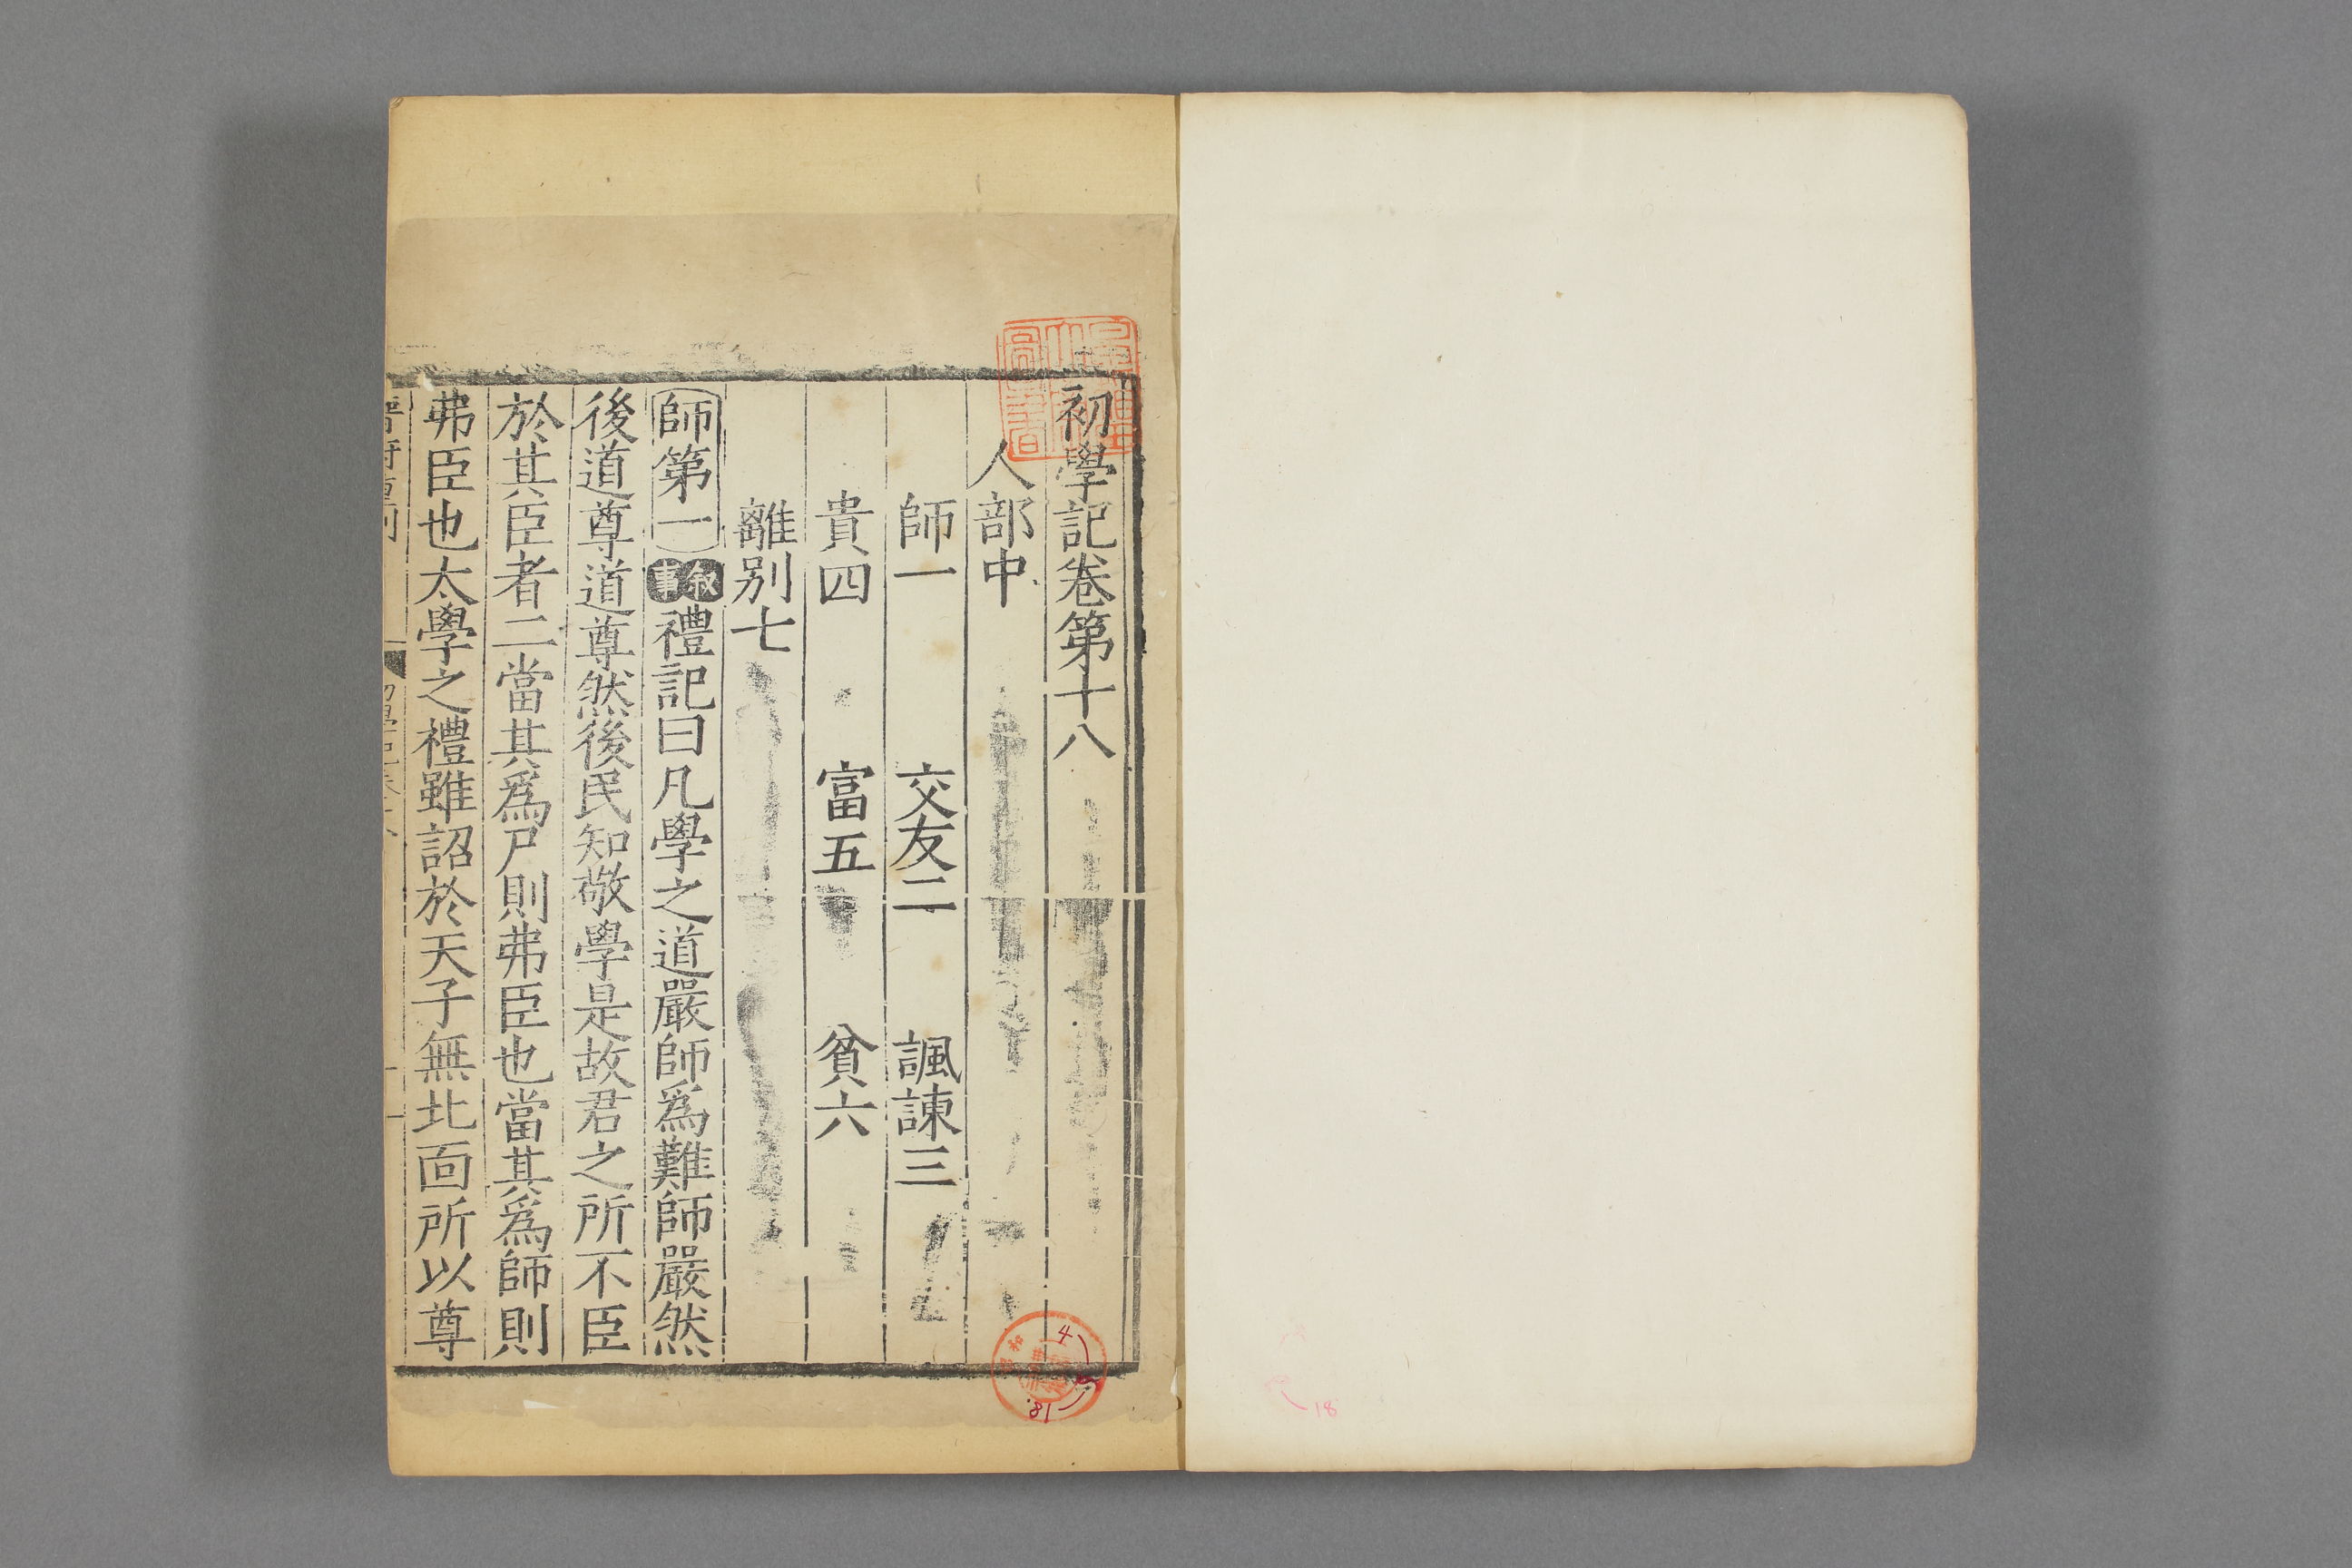 初學記卷第十八
人部中
師一 交友二 諷諫三
貴四 富五 貧六
離别七
師第一 叙事 禮記曰凡學之道嚴師爲難師嚴然
後道尊道尊然後民知敬學是故君之所不臣
於其臣者二當其爲尸則弗臣也當其爲師則
弗臣也太學之禮雖詔於天子無北面所以尊
晉府重刊
初學記卷十八
4
18
18